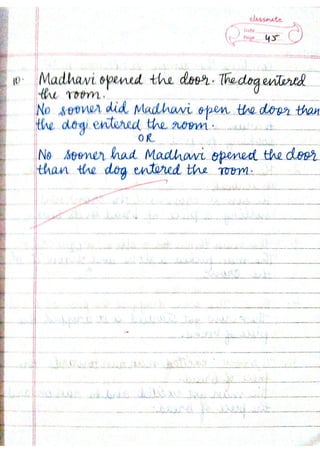 classmate
Date
Page 45
10. Madhavi opened the door. The dog entered
the room.
No sooner did Madhavi open the door than
the dog entered the room.
OR
No sooner had Madhavi opened the door
than the dog entered the room.